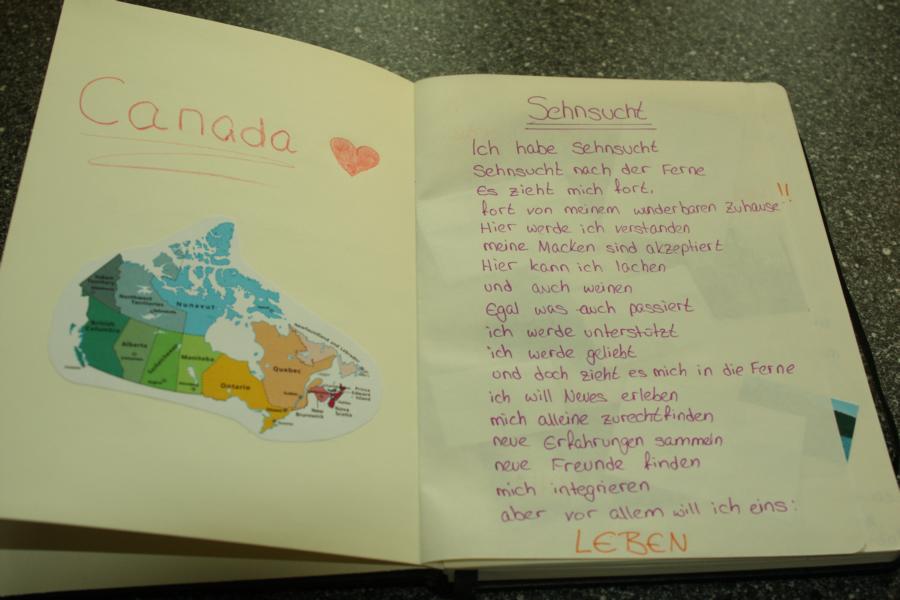 Canada
Yukon Territory
Northwest Territories
Nunavut
British Columbia
Alberta
Saskatchewan
Manitoba
Ontario
Quebec
Newfoundland and Labrador
Prince Edward Island
New Brunswick
Nova Scotia
Sehnsucht
Ich habe Sehnsucht
Sehnsucht nach der Ferne
Es zieht mich fort,
fort von meinem wunderbaren Zuhause!!
Hier werde ich verstanden
meine Macken sind akzeptiert
Hier kann ich lachen
und auch weinen
Egal was auch passiert
ich werde unterstützt
ich werde geliebt
und doch zieht es mich in die Ferne
ich will Neues erleben
mich alleine zurechtfinden
neue Erfahrungen sammeln
neue Freunde finden
mich integrieren
aber vor allem will ich eins:
LEBEN